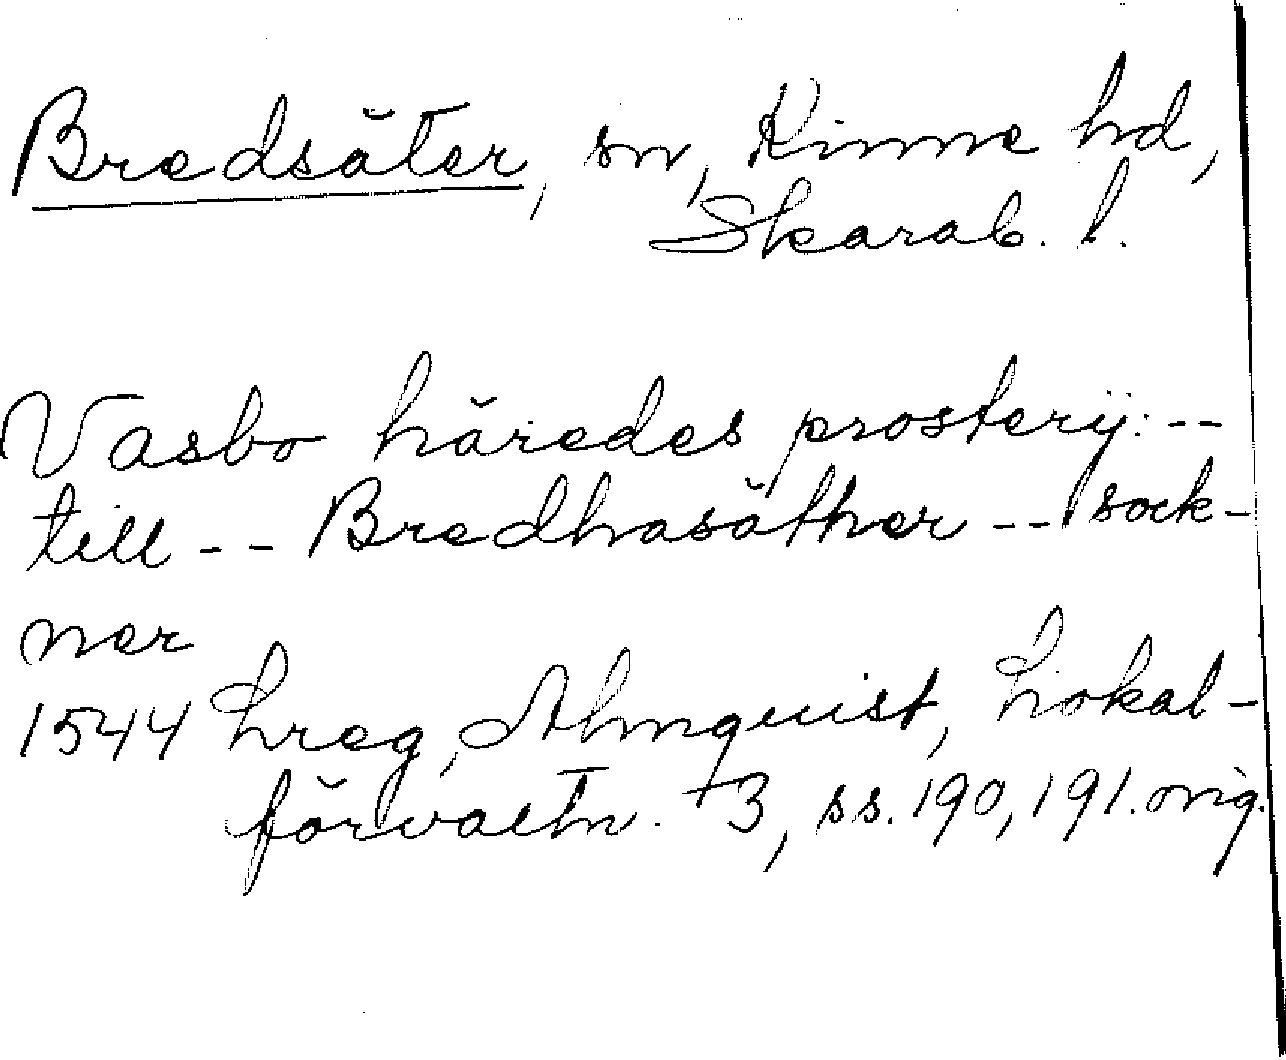 Bredsäter, sn, Kinne hd,
Skarab. l.
Vasbo häredes prosterij: --
till -- Bredhasäther -- sock-
ner
1544 Lreg, Almquist, Lokal-
förvaltn. 3, ss. 190, 191. orig.